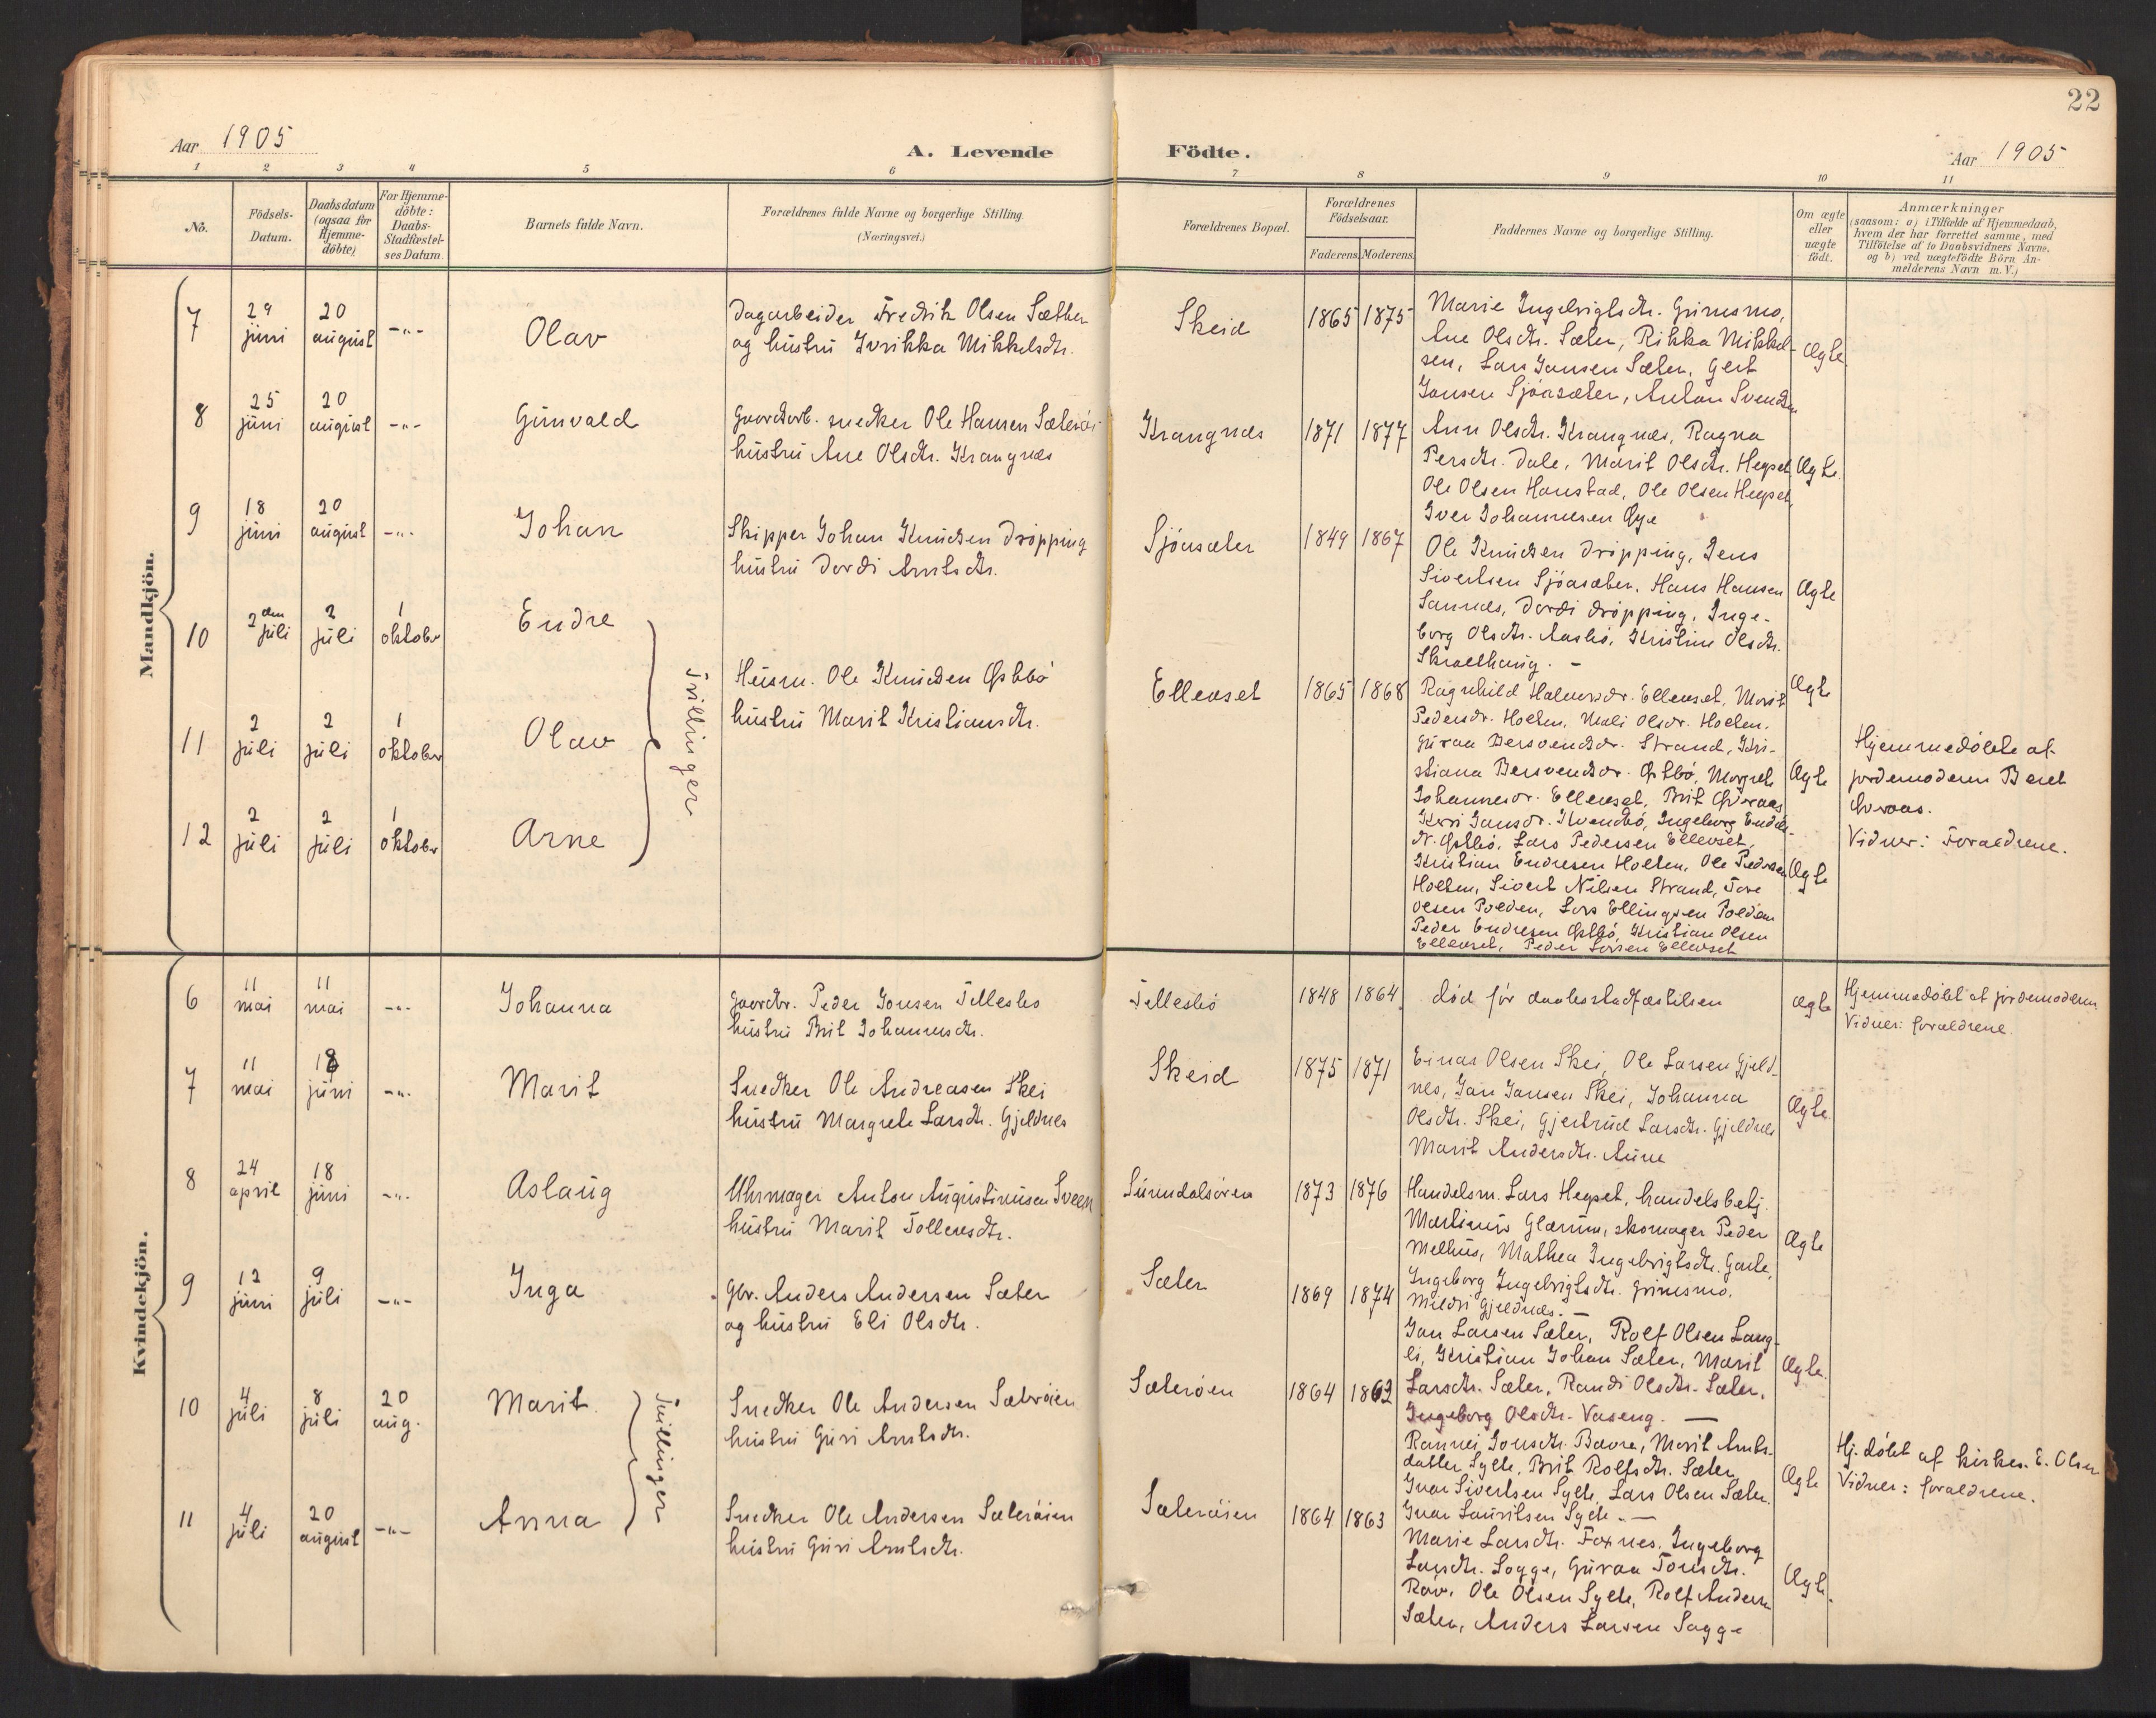 22
Aar 1905
A. Levende Födte.
Aar 1905
1 2 3 4 5 6 7 8 9 10 11
No.
Födsels-
Datum.
Daabsdatum
(ogsaa for
Hjemme-
döbte).
For Hjemme-
döbte:
Daabs-
Stadfæstel-
ses Datum.
Barnets fulde Navn.
Forældrenes fulde Navne og borgerlige Stilling.
(Næringsvei.)
Forældrenes Bopæl.
Forældrenes
Födselsaar.
Faderens. Moderens.
Faddernes Navne og borgerlige Stilling.
Om ægte
eller
uægte
födt.
Anmærkninger
(saasom: a) i Tilfælde af Hjemmedaab,
hvem der har forrettet samme, med
Tilföielse af to Daabsvidners Navne,
og b) ved uægtefödte Börn An-
melderens Navn m. V.)
Mandkjön.
7
29
juni
20
august
-"-
Olav
Dagarbeider Fredrik Olsen Sæther
og hustru Ivrikka Mikkelsdtr.
Skeid
1865 1875
Marie Ingebrigtsdtr. Grimsmo,
Ane Olsdtr. Sæter, Rikka Mikkel-
sen, Lars Jansen Sæter, Gert
Jansen Sjöasæter, Anton Svendsen
Ægte
8
25
juni
20
august
-"-
Gunvald
Gaardarb. snedker Ole Hansen Sæteröi
hustru Ane Olsdtr. Krangnes
Krangnæs
1871 1877
Ann Olsdtr. Krangnæs, Ragna
Persdtr. Dale, Marit Olsdtr. Hegset
Ole Olsen Hanstad, Ole Olsen Hegset,
Iver Johannesen Øye
Ægte.
9
18
juni
20
august
-"-
Johan
Skipper Johan Knudsen Dröpping
hustru Dordi Arntsdtr.
Sjöasæter
1849 1867
Ole Knudsen Dröpping, Jens
Sivertsen Sjöasæter, Hans Hansen
Sannæs, Dordi Dröpping, Inge-
borg Olsdtr. Aasbö, Kristine Olsdtr.
Skralthaug. -
Ægte
10
2den
juli
2
juli
1
oktober
Endre
11
2
juli
2
juli
1
oktober
Olav
12
2
juli
2
juli
1
oktober
Arne
Trillinger
Husm. Ole Knudsen Østbö
hustru Marit Kristiansdtr.
Ellevset
1865 1868
Ragnhild Halvorsdr. Ellevset, Marit
Pedersdr. Holten, Mali Olsdr. Holten,
Guraa Bersvendsdr. Strand, Kri-
stiana Bersvendsdr. Østbö, Margrete
Johannesdr. Ellevset, Brit Øvraas
Kari Jansdr. Kvendbö, Ingeborg Endre-
dr. Østbö, Lars Pedersen Ellevset,
Kristian Endresen Holten, Ole Pedersen
Holten, Sivert Nilsen Strand, Tore
Olsen Polden, Lars Ellingsen Polden
Peder Endresen Østbö, Kristian Olsen
Ellevset, Peder Larsen Ellevset
Ægte
Ægte
Ægte
Hjemmedöbte af
jordemoderen Beret
Øvraas.
Vidner: Forældrene.
Kvindekjön.
6
11
mai
11
mai
-"-
Johanna
Gaardbr. Peder Jonsen Tellesbö
hustru Brit Johannesdtr.
Tellesbö
1848 1864
död för daabsstadfæstelsen
ægte
Hjemmedöbt af jordemoderen
Vidner: forældrene.
7
11
mai
18
juni
-"-
Marit
Snedker Ole Andreasen Skei
hustru Margrete Larsdtr. Gjeldnes
Skeid
1875 1871
Einar Olsen Skei, Ole Larsen Gjeld-
nes, Jan Jansen Skei, Johanna
Olsdtr. Skei, Gjertrud Larsdtr. Gjeldnes
Marit Andersdtr. Aune
Ægte.
8
24
april
18
juni
-"-
Aslaug
Uhrmager Anton Augustinusen Sveen
hustru Marit Tollevsdtr.
Surendalsören
1873 1876
Handelsm. Lars Hegset, handelsbetj.
Martinus Glærum, skomager Peder
Melhus, Mathea Ingebrigtsdtr. Garte,
Ingeborg Ingebrigtsdtr. Grimsmo,
Mildri Gjeldnes. -
Ægte
9
12
juni
9
juli
-"-
Inga
Gbr. Anders Andersen Sæter
og hustru Eli Olsdtr.
Sæter
1869 1874
Jan Larsen Sæter, Rolf Olsen Lang-
li, Kristian Johan Sæter, Marit
Larsdtr. Sæter, Randi Olsdtr. Sæter,
Ingeborg Olsdtr. Vaseng. -
Ægte.
10
4
juli
8
juli
20
aug.
Marit
Tvillinger
Snedker Ole Andersen Sæteröien
hustru Guri Arntsdtr.
Sæteröen
1864 1863
Rannei Jonsdtr. Bævre, Marit Arnts-
datter Sylte, Brit Rolfsdtr. Sæter,
Ivar Sivertsen Sylte, Lars Olsen Sæter,
Ivar Lauritsen Sylte. -
Ægte
Hj. döbt af kirkes. E. Olsen
Vidner: forældrene.
11
4
juli
20
august
-"-
Anna
Snedker Ole Andersen Sæteröien
hustru Guri Arntsdtr.
Sæteröien
1864 1863
Marie Larsdtr. Foxnes, Ingeborg
Larsdtr. Sogge, Guraa Toresdtr.
Röv, Ole Olsen Sylte, Rolf Andersen
Sæter, Anders Larsen Sogge
Ægte.